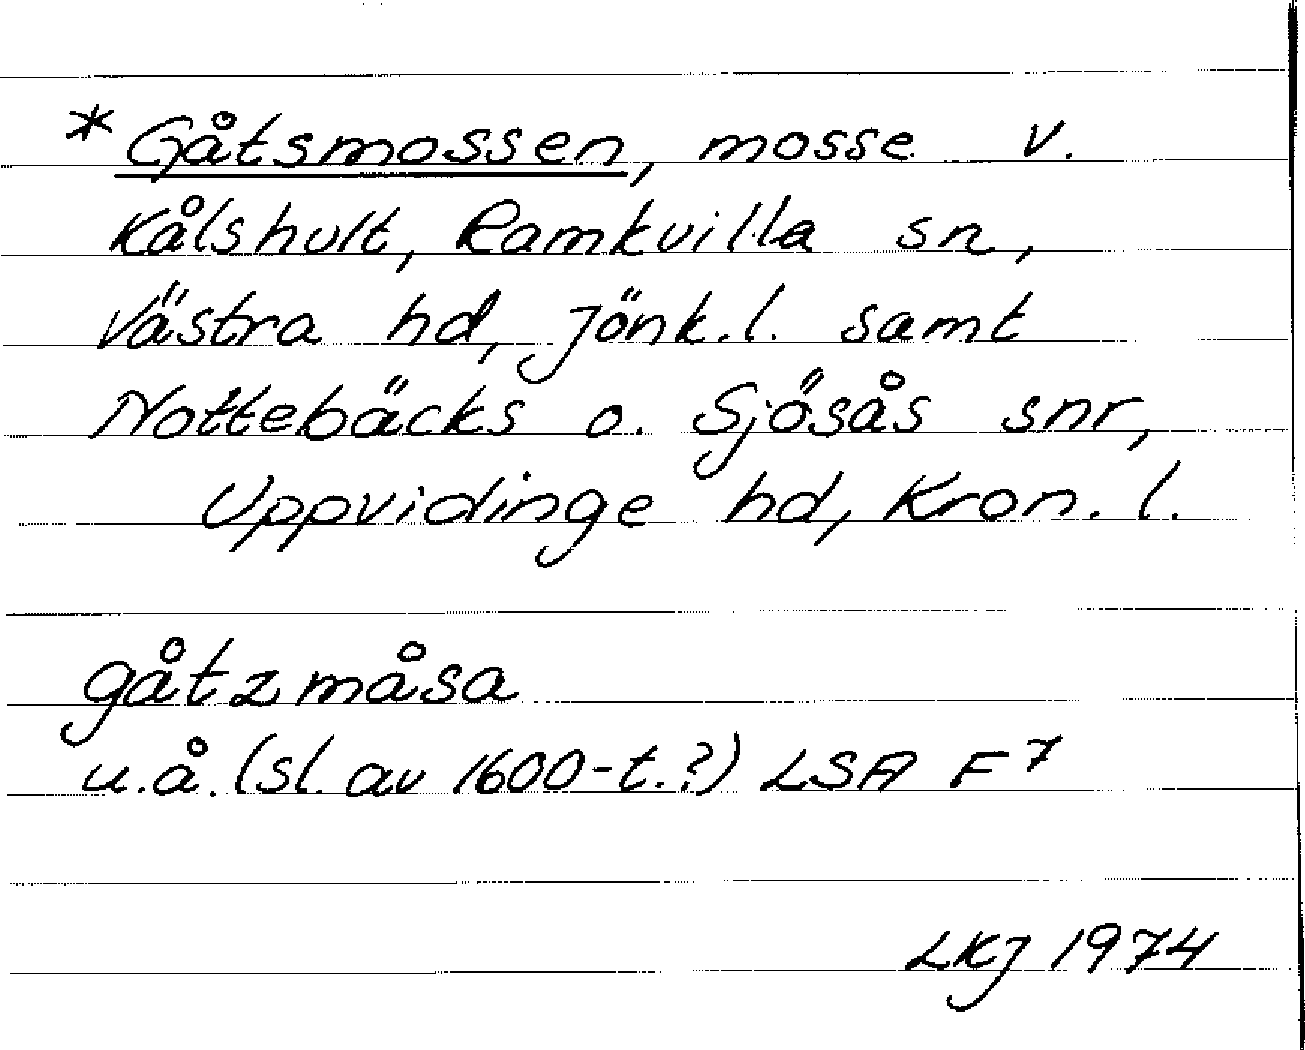 * Gåtsmossen, mosse v.
Kålshult, Ramkvilla sn,
Västra hd, Jönk.l. samt
Nottebäcks o. Sjösås snr,
Uppvidinge hd, Kron. l.
gåtzmåsa
u.å. (sl. av 1600-t.?) LSA F7
LKJ 1974